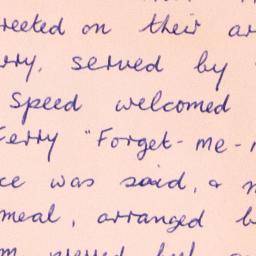 reeted on their ar
rry, served by
speed welcomed
Ferry "Forget-me-n
ce was said, & n
meal, arranged b